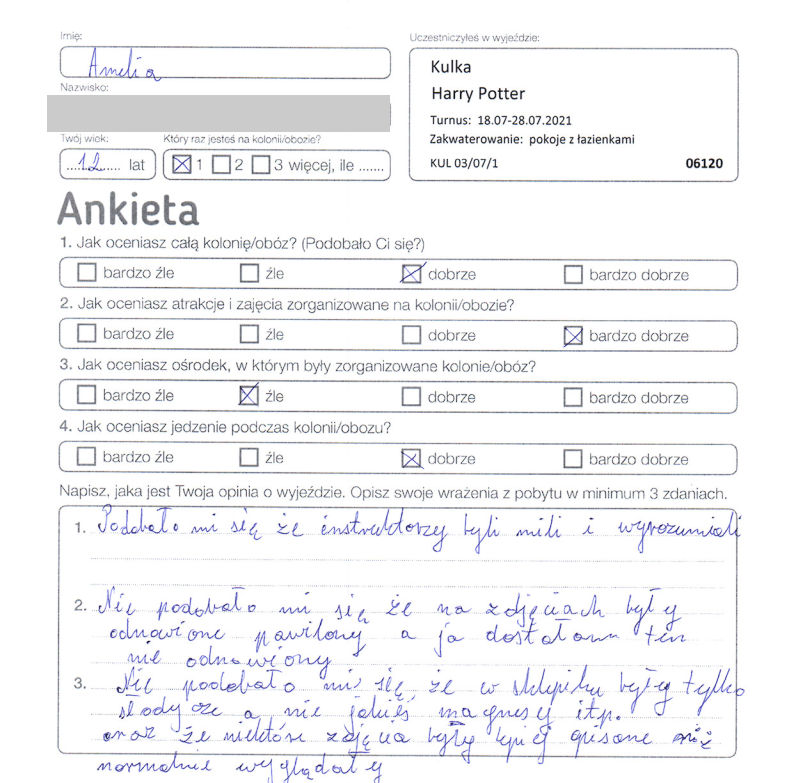 Imię:
Uczestniczyłeś w wyjeździe:
Amelia
Kulka
Harry Potter
Nazwisko:
Turnus: 18.07-28.07.2021
Twój wiek:
Który raz jesteś na kolonii/obozie?
Zakwaterowanie: pokoje z łazienkami
....12..... lat
1 2 3 więcej, ile .......
KUL 03/07/1 06120
Ankieta
1. Jak oceniasz całą kolonię/obóz? (Podobało Ci się?)
bardzo źle źle dobrze bardzo dobrze
2. Jak oceniasz atrakcje i zajęcia zorganizowane na kolonii/obozie?
bardzo źle źle dobrze bardzo dobrze
3. Jak oceniasz ośrodek, w którym były zorganizowane kolonie/obóz?
bardzo źle źle dobrze bardzo dobrze
4. Jak oceniasz jedzenie podczas kolonii/obozu?
bardzo źle źle dobrze bardzo dobrze
Napisz, jaka jest Twoja opinia o wyjeździe. Opisz swoje wrażenia z pobytu w minimum 3 zdaniach.
1. Podobało mi się że instruktorzy byli mili i wyrozumiali
2. Nie podobało mi się że na zdjęciach były
odnowione pawilony a ja dostałam ten
nie odnowiony
3. Nie podobało mi się, że w sklepiku były tylko
słodycze a nie jakieś magnesy itp.
oraz że niektóre zdjęcia były lepiej opisane niż
normalnie wyglądały